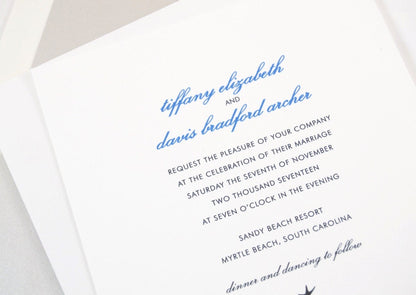 tiffany elizabeth
AND
davis bradford archer
REQUEST THE PLEASURE OF YOUR COMPANY
AT THE CELEBRATION OF THEIR MARRIAGE
SATURDAY THE SEVENTH OF NOVEMBER
TWO THOUSAND SEVENTEEN
AT SEVEN O'CLOCK IN THE EVENING
SANDY BEACH RESORT
MYRTLE BEACH, SOUTH CAROLINA
dinner and dancing to follow